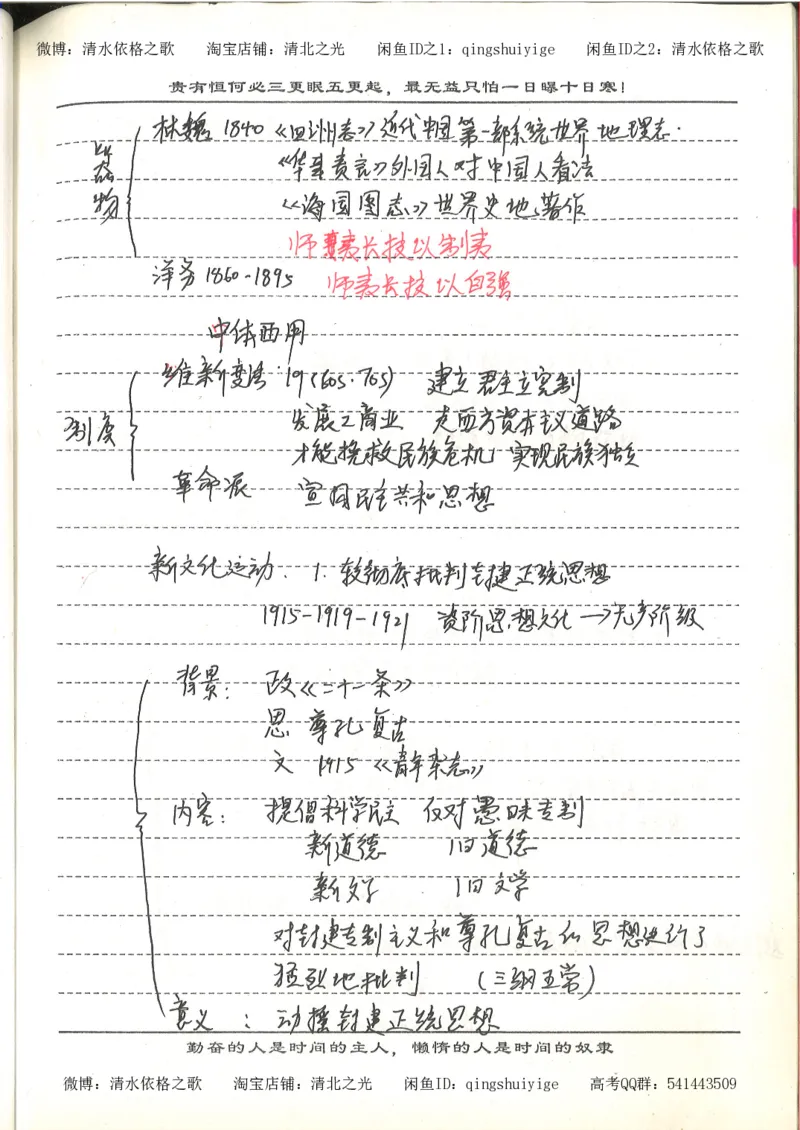 微博：清水依格之歌 淘宝店铺：清北之光 闲鱼ID之1：qingshuiyige 闲鱼ID之2：清水依格之歌
贵有恒何必三更眠五更起，最无益只怕一日曝十日寒！
器物
林魏 1840 《四洲志》近代中国第一部系统世界地理志.
《华事夷言》外国人对中国人看法
《海国图志》世界史地著作
师夷长技以制夷
洋务 1860-1895 师夷长技以自强
中体西用
制度
维新变法：19(60s.70s) 建立君主立宪制
发展工商业 走西方资本主义道路
才能挽救民族危机 实现民族独立
革命派 宣传民主共和思想
新文化运动. 1. 较彻底批判封建正统思想
1915-1919-1921 资阶思想文化→无产阶级
背景： 政《二十一条》
思 尊孔复古
文 1915 《青年杂志》
内容： 提倡科学民主 反对愚昧专制
新道德 旧道德
新文学 旧文学
对封建专制主义和尊孔复古的思想进行了
猛烈地批判 （三纲五常）
意义 ： 动摇封建正统思想
勤奋的人是时间的主人，懒惰的人是时间的奴隶
微博：清水依格之歌 淘宝店铺：清北之光 闲鱼ID：qingshuiyige 高考QQ群：541443509